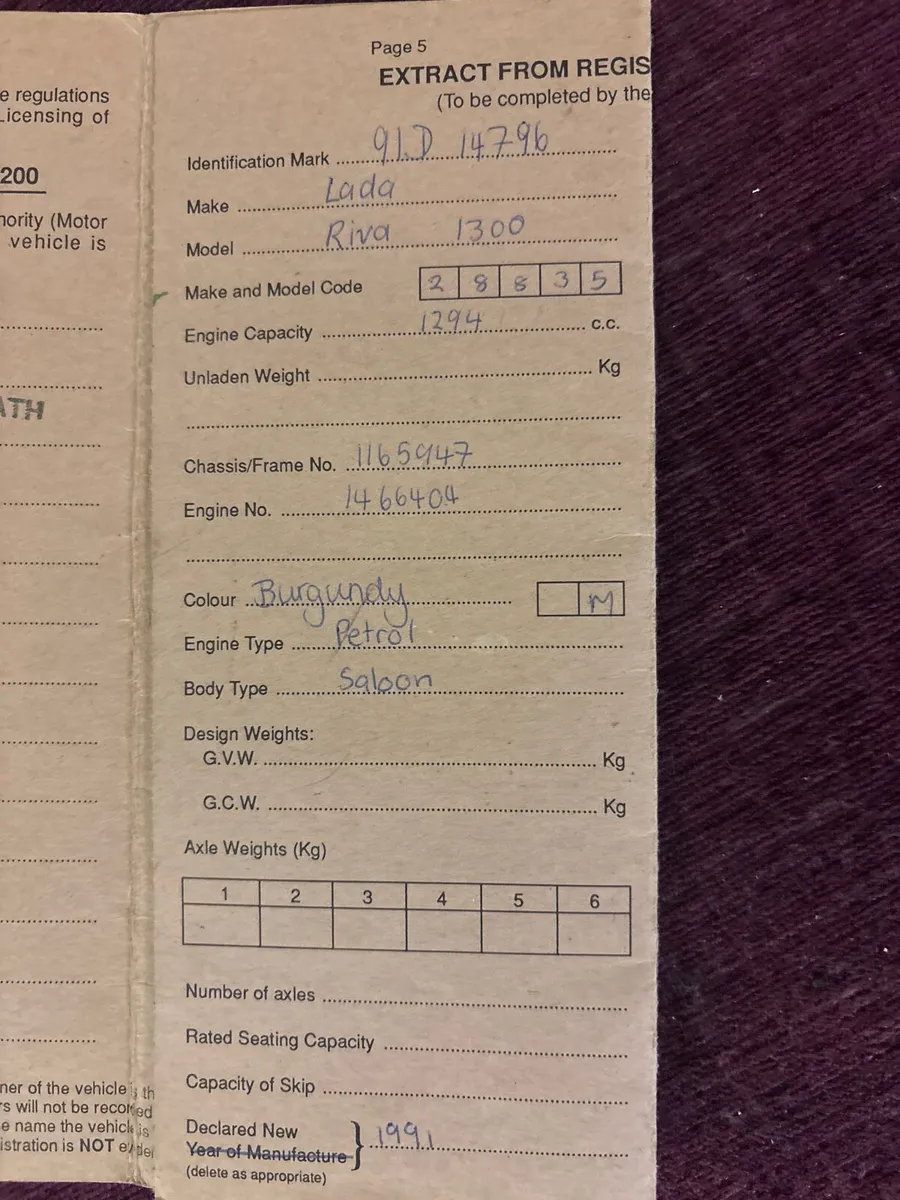 e regulations
Licensing of
200
hority (Motor
vehicle is
ATH
ner of the vehicle is th
rs will not be recorded
e name the vehicle is
istration is NOT evider
Page 5
EXTRACT FROM REGIS
(To be completed by the
Identification Mark 91.D 14796
Make Lada
Model Riva 1300
Make and Model Code 2 8 8 3 5
Engine Capacity 1294 c.c.
Unladen Weight Kg
Chassis/Frame No. 1165947
Engine No. 1466404
Colour Burgundy M
Engine Type Petrol
Body Type Saloon
Design Weights:
G.V.W. Kg
G.C.W. Kg
Axle Weights (Kg)
1 2 3 4 5 6
Number of axles
Rated Seating Capacity
Capacity of Skip
Declared New
Year of Manufacture } 1991
(delete as appropriate)